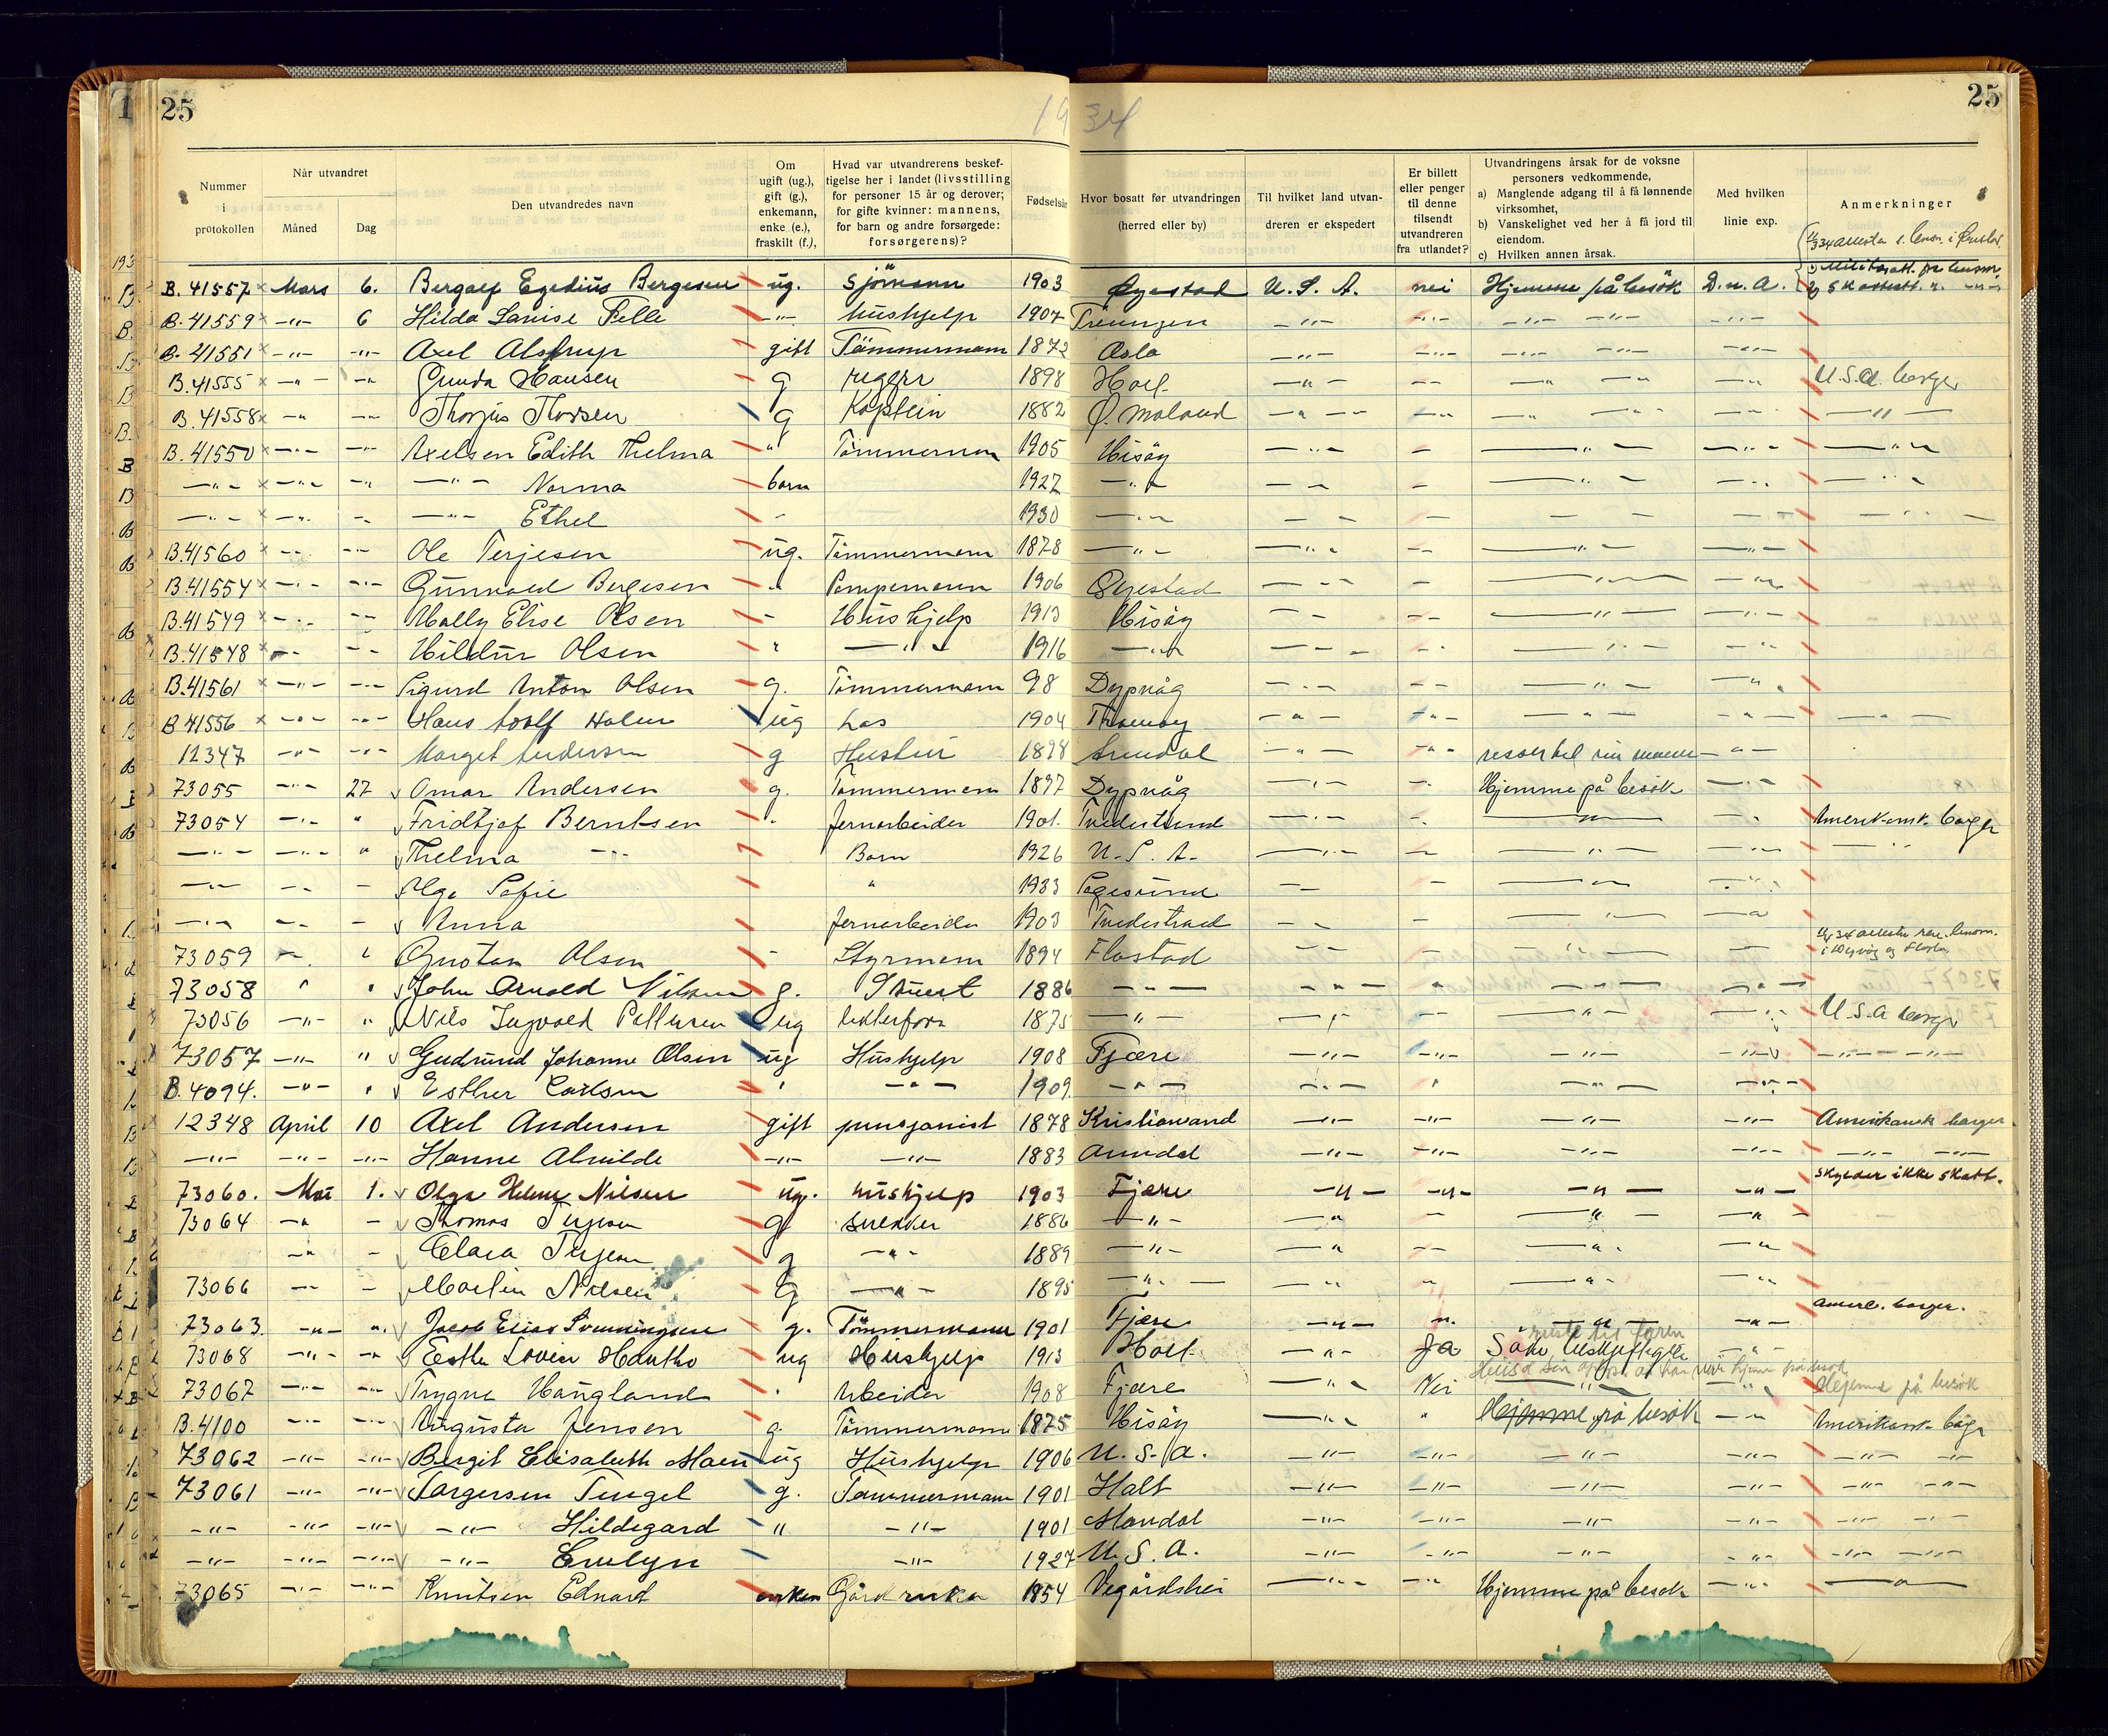 25
19 34
25
Nummer i protokollen | Når utvandret Måned | Dag | Den utvandredes navn | Om ugift (ug.), gift (g.), enkemann, enke (e.), fraskilt (f.), | Hvad var utvandrerens beskef-tigelse her i landet (livsstilling for personer 15 år og derover; for gifte kvinner: mannens, for barn og andre forsørgede: forsørgerens)? | Fødselsår | Hvor bosatt før utvandringen (herred eller by) | Til hvilket land utvan-dreren er ekspedert | Er billett eller penger til denne tilsendt utvandreren fra utlandet? | Utvandringens årsak for de voksne personers vedkommende, a) Manglende adgang til å få lønnende virksomhet, b) Vanskelighet ved her å få jord til eiendom. c) Hvilken annen årsak. | Med hvilken linie exp. | Anmerkninger
B. 41557 Mars 6. Bergalf Egedius Bergesen ug. Sjömann 1903 Øyestad U. S. A. nei Hjemme på besök D. n. A.
B. 41559 -"- 6 Hilda Lovise Felle -"- hushjelp 1907 Treungen -"- -"- -"- -"- -"-
B. 41551 -"- -"- Axel Alstrup gift Tömmermann 1872 Oslo -"- -"- -"- -"- -"-
B. 41555 -"- -" Gunda Hansen g 1898 Holt -"- -"- -"- -"- -"- U.S.A. borger
B. 41558 -" -"- Thorjus Thorsen g Kaptein 1882 Ö. Moland -"- -"- -"- -"- -"- -"-
B. 41550 -"- -"- Axelsen Edith Thelma " Tömmermann 1905 Hisöy -"- - -"- -"- -"-
-"- -"- -"- -"- Norma barn 1927 -"- -"- - -"- -"- -"-
-"- -"- -"- -"- Ethel - 1930 -"- -"- - -"- -"- -"-
B. 41560 -"- -"- Ole Terjesen ug. Tömmermann 1878 -"- -"- -"- -"- -"-
B. 41554 -"- -"- Gunvald Bergesen " Pumpemann 1906 Öyestad -"- - -"- -"-
B. 41549 -"- -"- Mally Elise Olsen - Hushjelp 1913 Hisöy -"- -"- -"- -"-
B. 41548 -"- -"- Hildur Olsen " -"- 1916 -"- -"- -"- -"- -"-
B. 41561 -"- -"- Sigurd Anton Olsen g. Tömmermann 98 Dypvåg -"- -"- -"- -"-
B 41556 -"- -"- Hans Adolf Holm ug Los 1904 Tromöy -"- -"- -"- -"- -"-
12347 -"- -"- Marget Andersen g Hustru 1898 Arendal -"- -"- reiser til sin mann -"-
73055 -"- 27 Omar Andersen g. Tömmermann 1897 Dypvåg -"- -"- Hjemme på besök -"-
73054 -"- " Fridtjof Berntsen " Jernarbeider 1901. Tvedestrand -"- -"- -"- -"- Amerikansk borger
-"- -"- " Thelma -"- Barn 1926 U. S. A. -"- -"- -"- -"- -"-
-"- -"- - Olga Sofie " 1933 -"- - -"- -"-
-"- -"- - Anna Jernarbeider 1903 Tvedestrand -"- - -"- -"-
73059 -"- " Gustav Olsen - Styrmann 1894 Flostad -"- - -"- -"-
73058 " " John Arnold Nilsen g. Stuert 1886 -"- -"- " -"- -"-
73056 -"- " Nils Ingvald Pettersen ug 1875 -"- -"- -"- -"- U.S.A borger
73057 -"- " Gudrund Johanne Olsen ug Hushjelp 1908 Fjære -"- -"- -"- -"- -"- -"-
B. 4094. -"- " Esther Carlsen " -"- 1909. -"- -"- " -"- -"-
12348 April 10 Axel Andersen gift 1878 Kristiansand -"- -"- -"- -"- Amerikansk borger
-"- -"- -"- Hanne Alvilde -"- -"- 1883 Arendal -"- -"- -"- -"- -"- -"-
73060. Mai 1. Olga Helene Nilsen ug. hushjelp 1903 Fjære -"- -"- -"- -"- Skylder ikke skatt.
73064 -" - Thomas Terjesen g snekker 1886 -"- -" - -"- -"-
-" - Clara Terjesen g -"- 1889 -"- -" -"- -"- -"-
73066 -"- - Martin Nilsen g -"- 1895 -"- -"- " -"- -"-
73063. -"- ". Jacob Elias Svenningsen g. Tömmermann 1901 Fjære -"- ". -"- -"- amerk. borger.
73068 -"- -" Esther Lovise Hantho ug Hushjelp 1913 Holt -"- Ja Söke beskjeftigelse -"-
73067 -"- -"- Trygve Haugland " Arbeider 1908 Fjære -"- Nei -"- -"- Hjemme på besök
B. 4100 -"- -"- Augusta Jensen g. Tömmermann 1875 Hisöy -"- " Hjemme på besök -"- Amerikansk borger
73062 -"- -"- Bergit Elisabeth Moen ug Hushjelp 1906 U. S. A. -"- -"- -"- -"- -"- -"-
73061 -"- -"- Torgersen Tengel g. Tömmermann 1901 Holt -"- -"- -"- -"- -"- -"-
-"- -"- -"- -"- Hildegard " -"- 1901 Mandal -"- -"- -"- -"- -"- -"-
-"- -"- -"- -"- Evelyn -"- 1927 U. S. A. -"- -"- -"- -"- -"- -"-
73065 -"- -"- Knutsen Ednart enkem Gårdbruker 1854 Vegårdshei -"- -"- Hjemme på besök -"- -"-